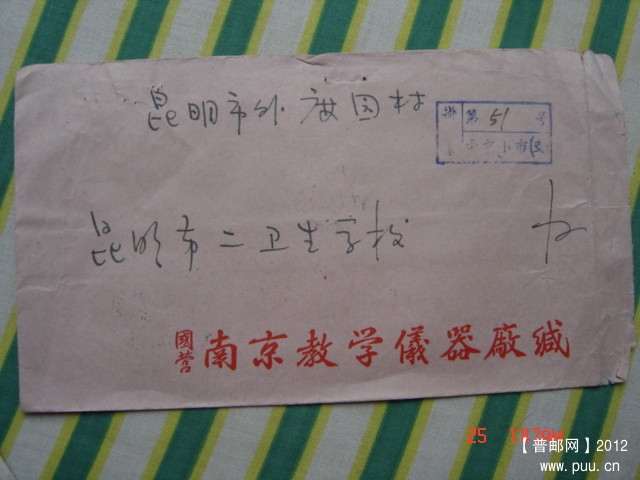 昆明市外庾园村
掛 第 51 号
昆明市二卫生学校
國营 南京教学儀器廠缄
【普邮网】2012
www.puu.cn